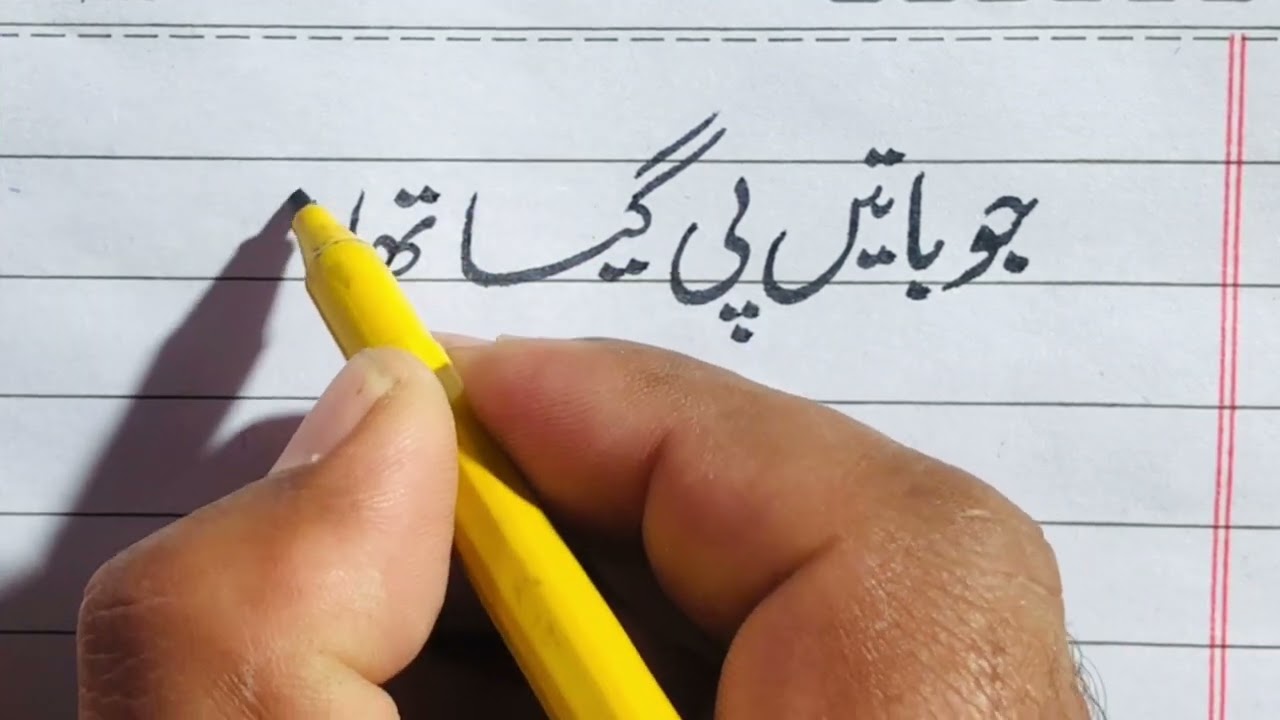 جو باتیں پی گیا تھا